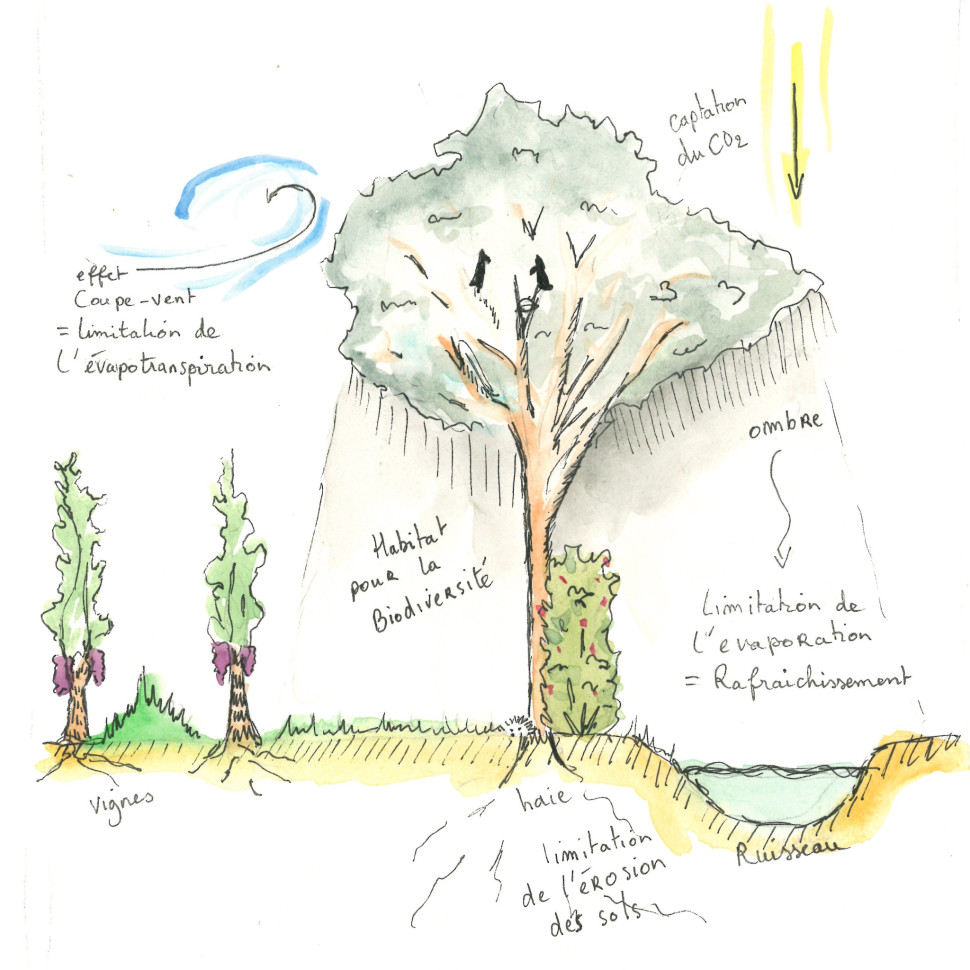 captation
du CO2
effet
Coupe-vent
= limitation de
l'évapotranspiration
ombre
Habitat
pour la
Biodiversité
Limitation de
l'evaporation
= Rafraichissement
vignes
haie
limitation
de l'érosion
des sols
Ruisseau